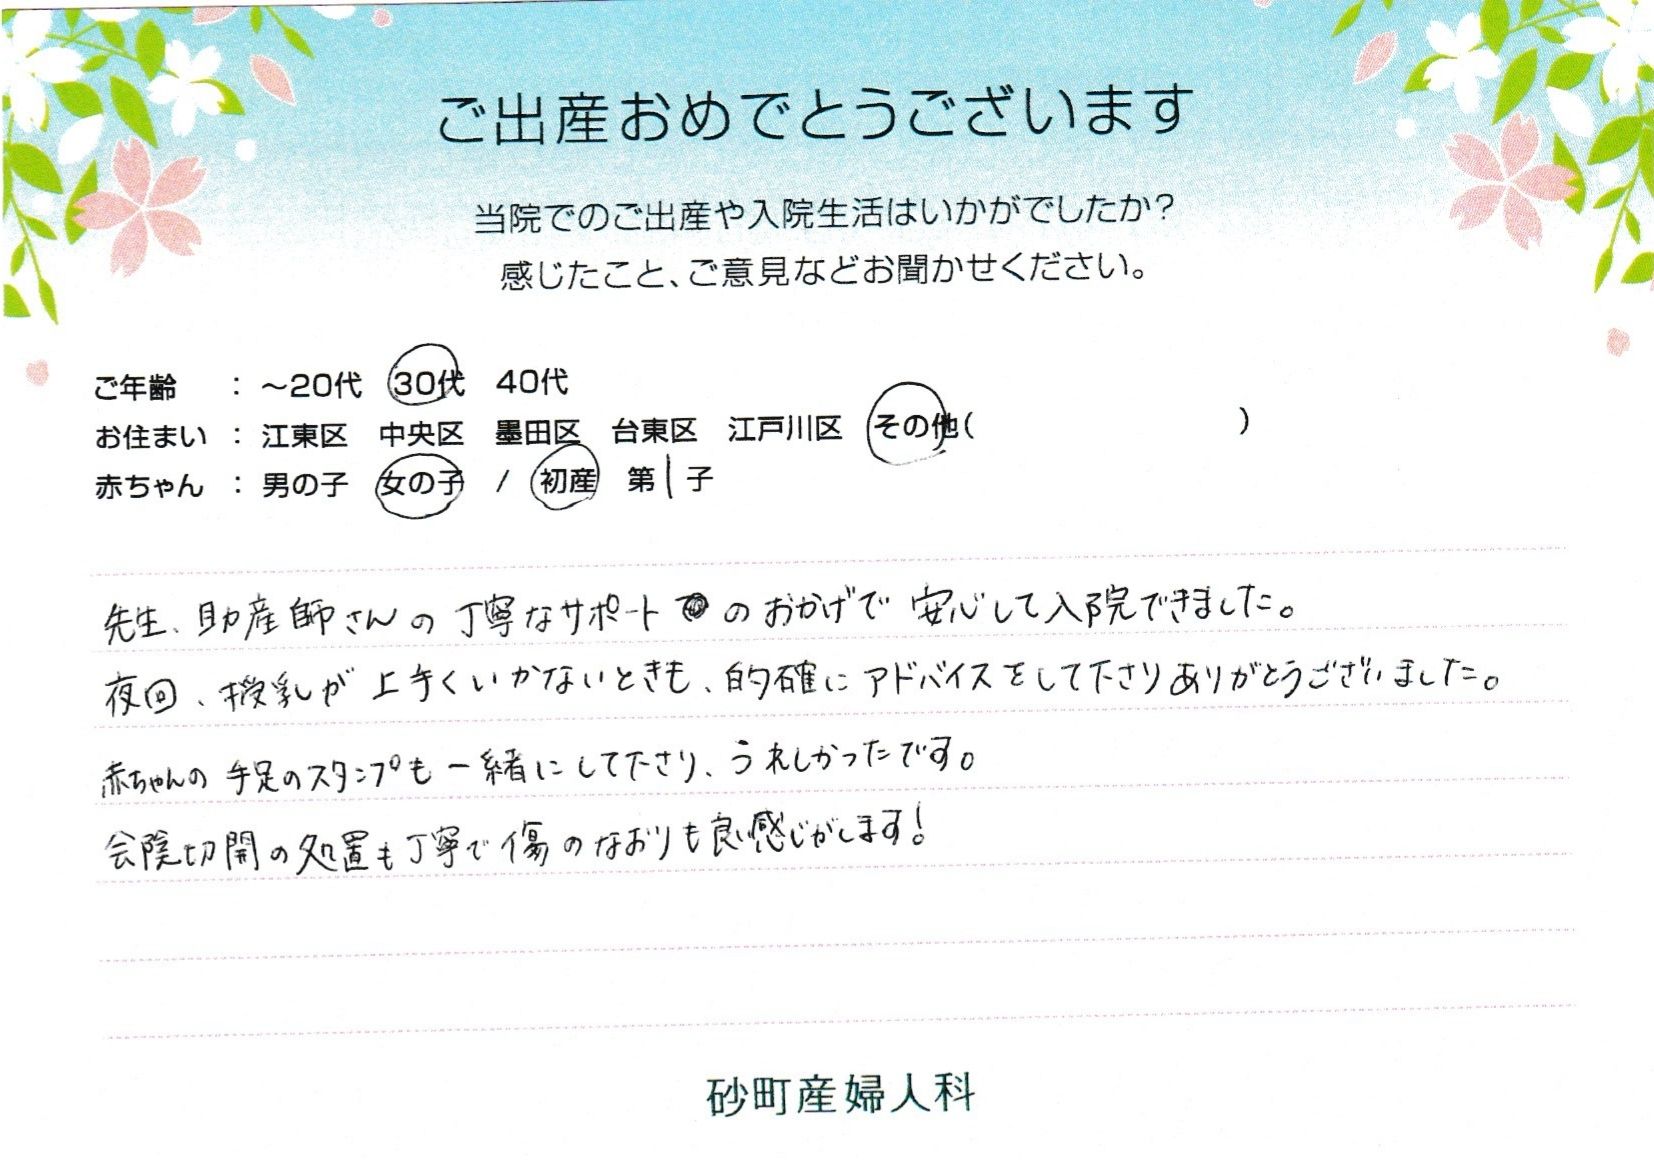 ご出産おめでとうございます
当院でのご出産や入院生活はいかがでしたか?
感じたこと、ご意見などお聞かせください。
ご年齢 : ～20代 30代 40代
お住まい : 江東区 中央区 墨田区 台東区 江戸川区 その他( )
赤ちゃん : 男の子 女の子 / 初産 第1子
先生、助産師さんの丁寧なサポートのおかげで安心して入院できました。
夜間、授乳が上手くいかないときも、的確にアドバイスをして下さりありがとうございました。
赤ちゃんの手足のスタンプも一緒にして下さり、うれしかったです。
会陰切開の処置も丁寧で傷のなおりも良い感じがします!
砂町産婦人科